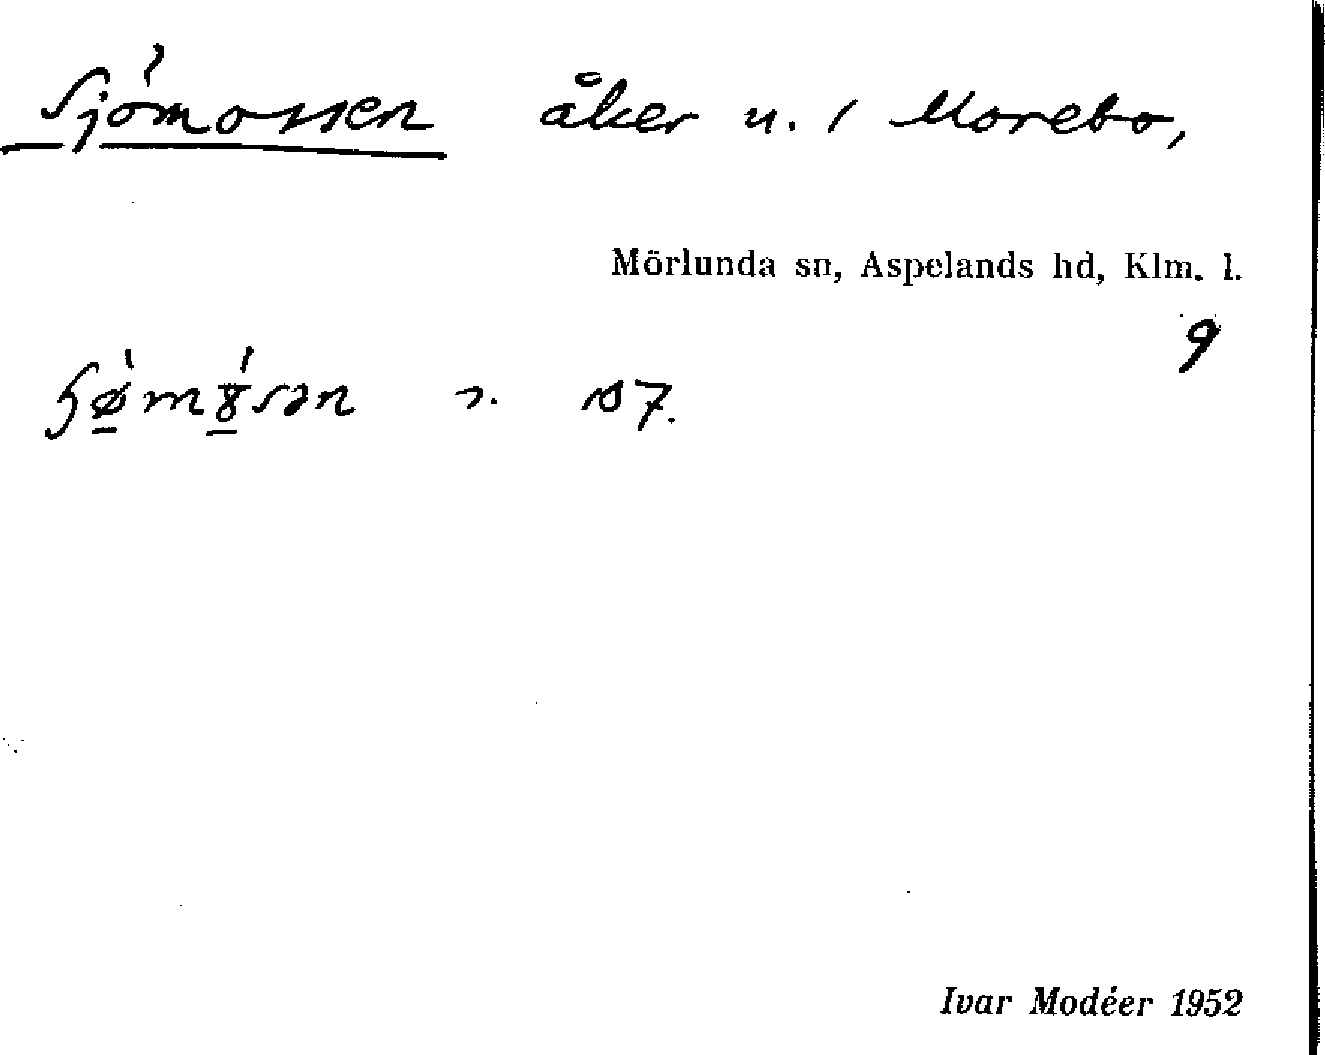 Sjömossen åker u. / Morebo,
Mörlunda sn, Aspelands hd, Klm. l.
9
Ivar Modéer 1952